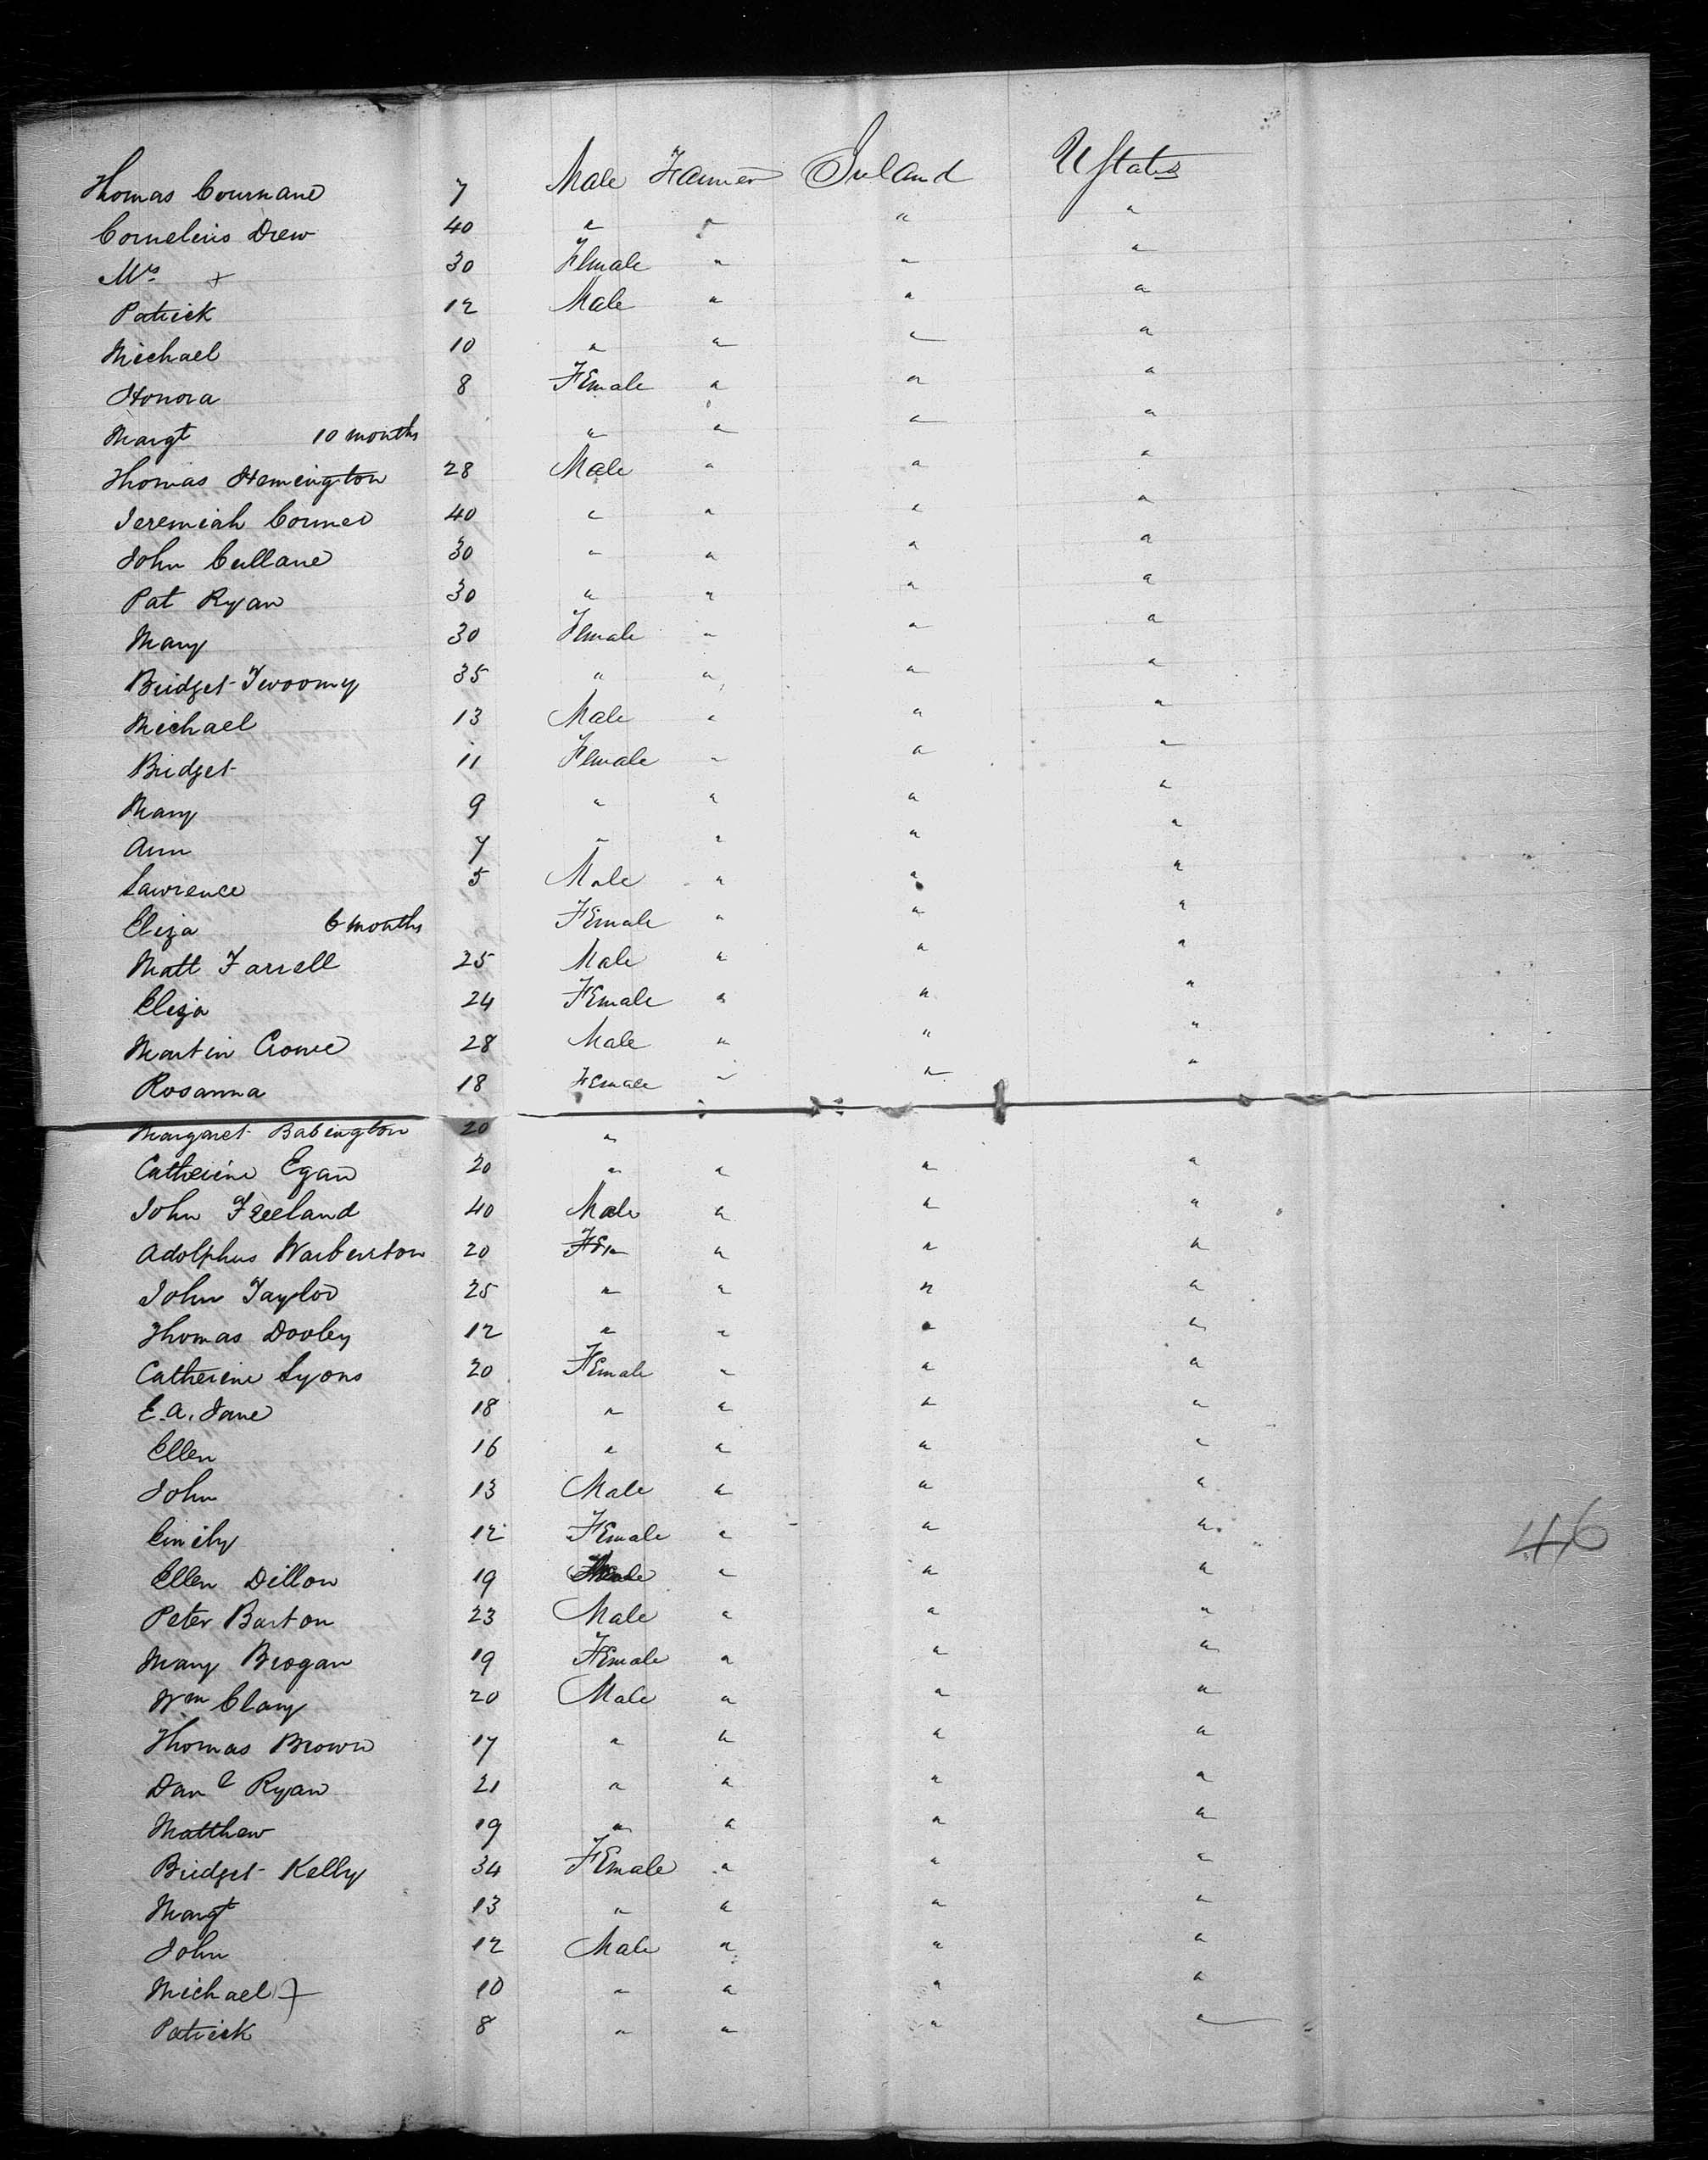 Thomas Cournane 7 Male Farmer Ireland U States
Cornelius Drew 40 " " " "
Mrs + 30 Female " " "
Patrick 12 Male " " "
Michael 10 " " " "
Honora 8 Female " " "
Margt 10 months " " " "
Thomas Hemington 28 Male " " "
Jeremiah Connor 40 " " " "
John Cullane 30 " " " "
Pat Ryan 30 " " " "
Mary 30 Female " " "
Bridget Twoomy 35 " " " "
Michael 13 Male " " "
Bridget 11 Female " " "
Mary 9 " " " "
Ann 7 " " " "
Lawrence 5 Male " " "
Eliza 6 months Female " " "
Matt Farrell 25 Male " " "
Eliza 24 Female " " "
Martin Crowe 28 Male " " "
Rosanna 18 Female " " "
Margaret Babington 20 "
Catherine Egan 20 " " " "
John Freeland 40 Male " " "
Adolphus Warburton 20 " " "
John Taylor 25 " " " "
Thomas Dooley 12 " " " "
Catherine Lyons 20 Female " " "
E. A. Jane 18 " " " "
Ellen 16 " " " "
John 13 Male " " "
Emily 12 Female " " "
Ellen Dillon 19 " " "
Peter Barton 23 Male " " "
Mary Brogan 19 Female " " "
Wm Clary 20 Male " " "
Thomas Brown 17 " " " "
Danl Ryan 21 " " " "
Matthew 19 " " " "
Bridget Kelly 34 Female " " "
Margt 13 " " " "
John 12 Male " " "
Michael + 10 " " " "
Patrick 8 " " " "
46